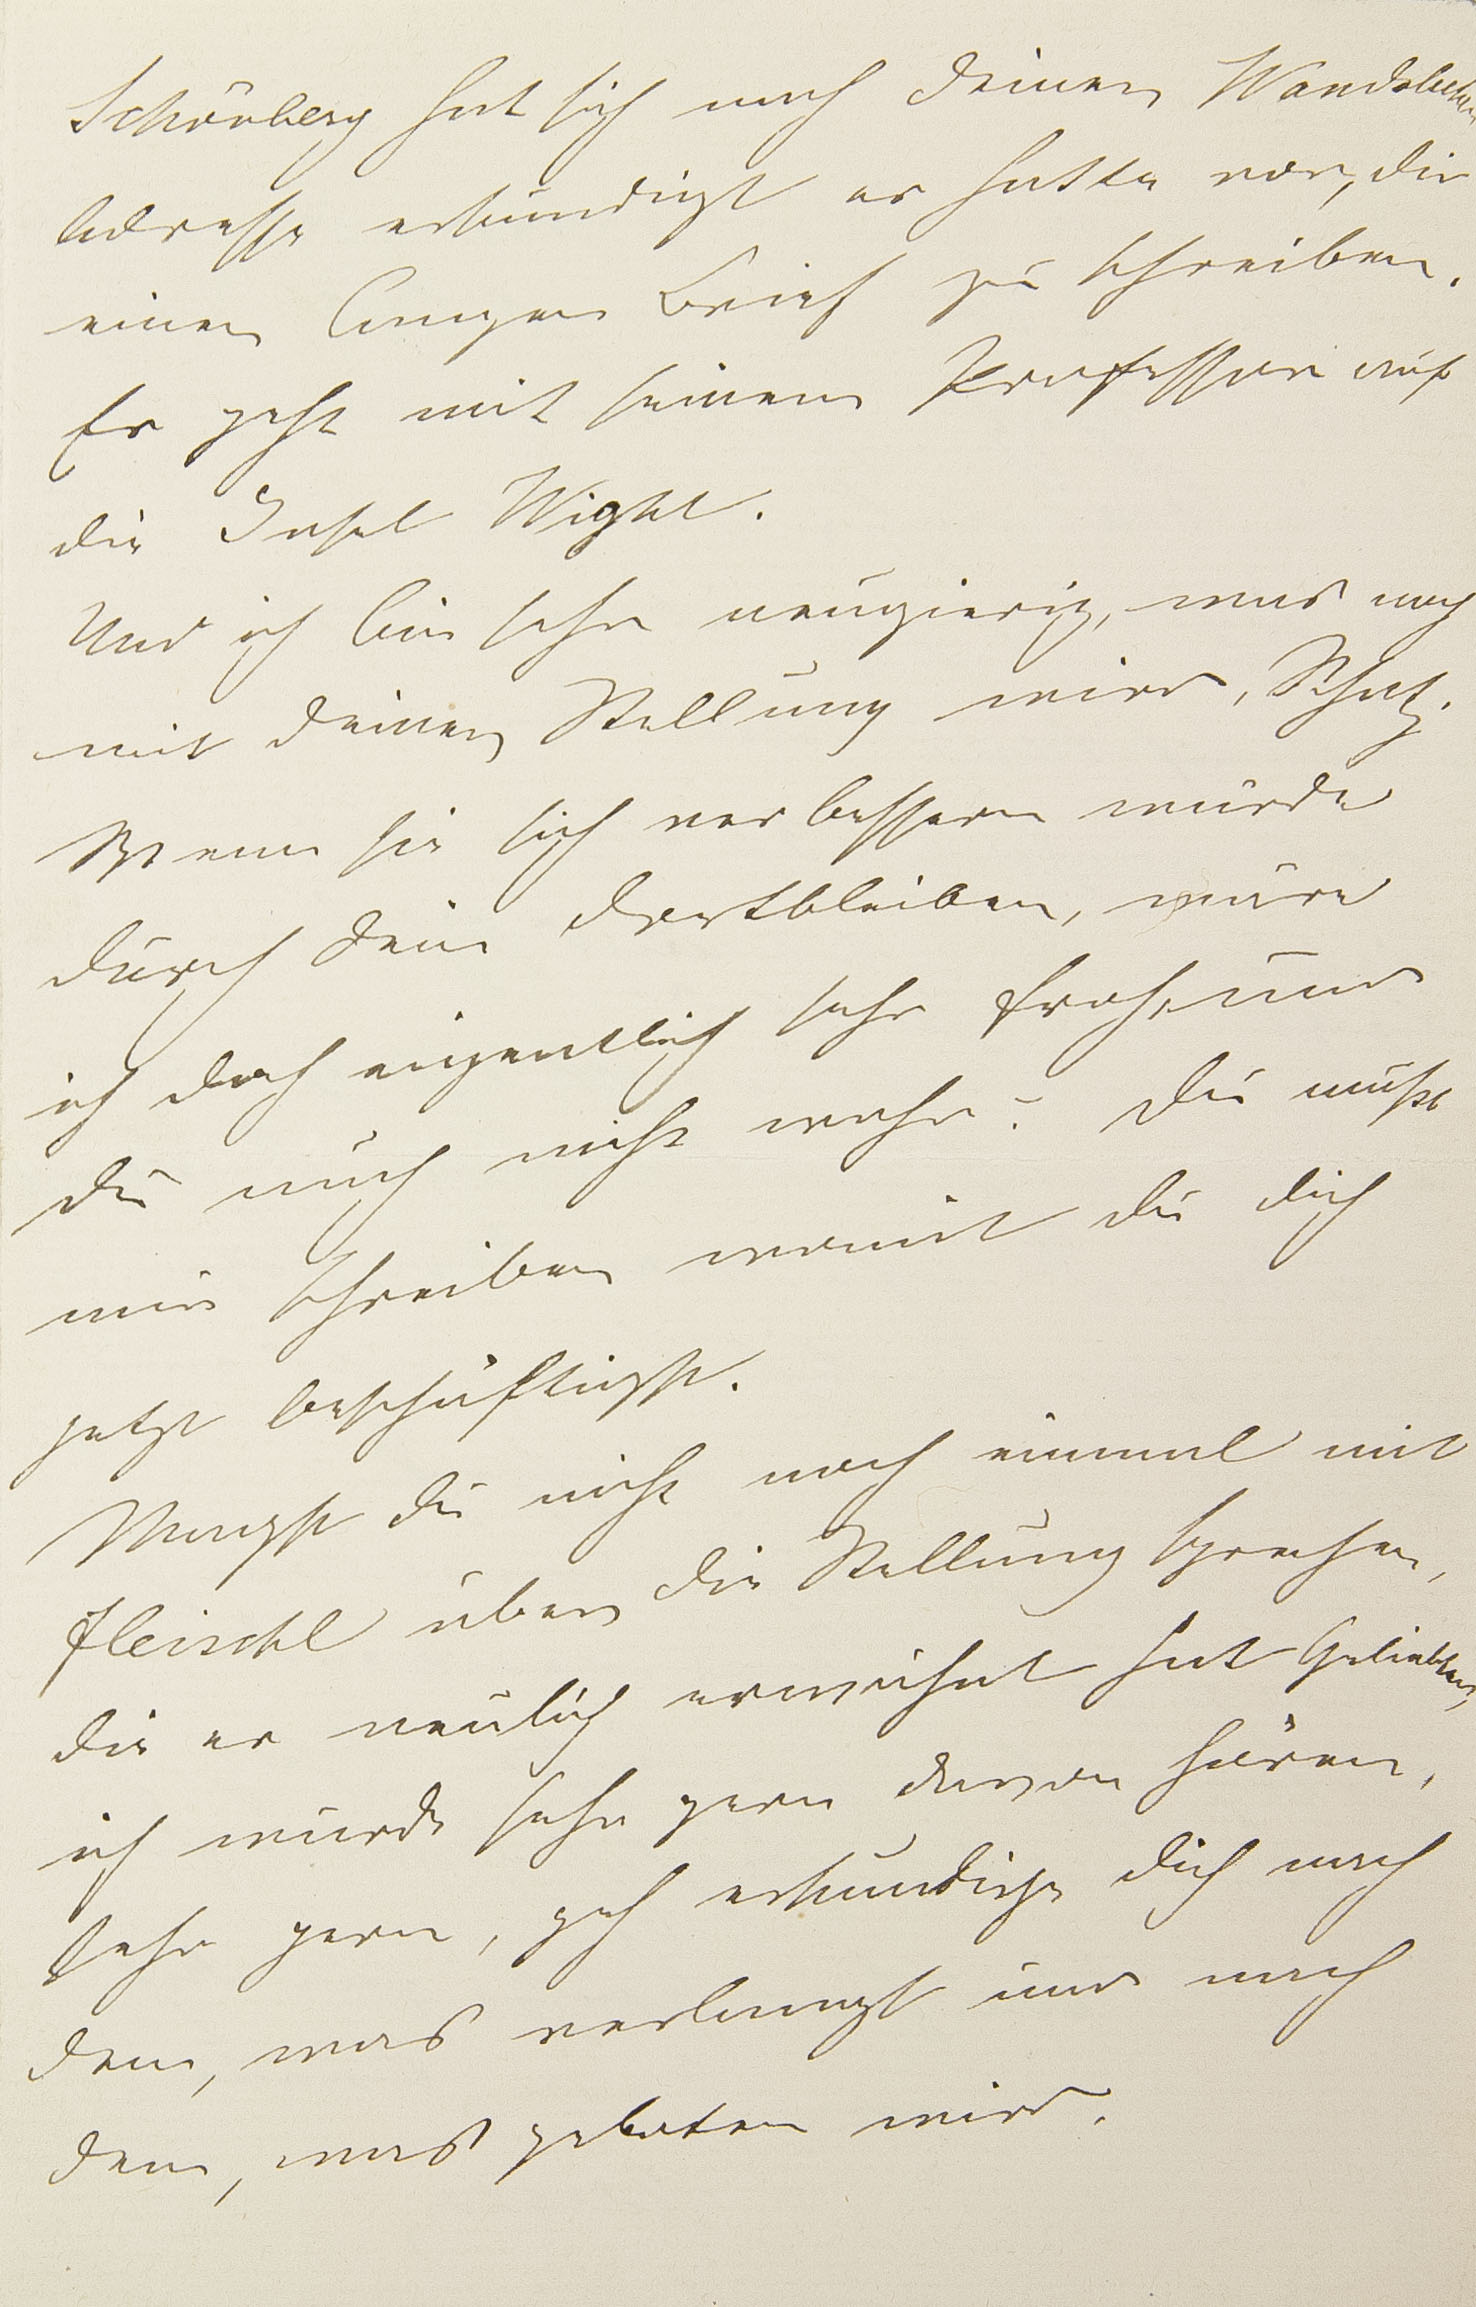 Schönberg hat sich nach deiner Wandsbeker
Adresse erkundigt er hatte vor, dir
einen langen Brief zu schreiben.
Er geht mit seinem Professor auf
die Insel Wight.
Und ich bin sehr neugierig, was noch
mit deiner Stellung wird, Schatz.
Wenn sie sich verbessern würde
durch dein dortbleiben, wäre
ich doch eigentlich sehr froh, und
du auch nicht wahr? Du mußt
mir schreiben womit du dich
jetzt beschäftigst.
Magst du nicht noch einmal mit
Fleischl über die Stellung sprechen,
die er neulich erwähnt hat Geliebter,
ich würde sehr gern davon hören,
sehr gern, geh erkundige dich nach
dem, was verlangt und nach
dem, was geboten wird.